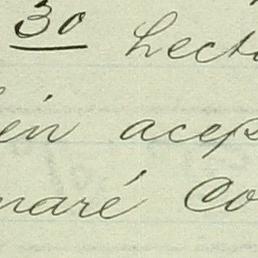 30 Lect
én acep
naré Co